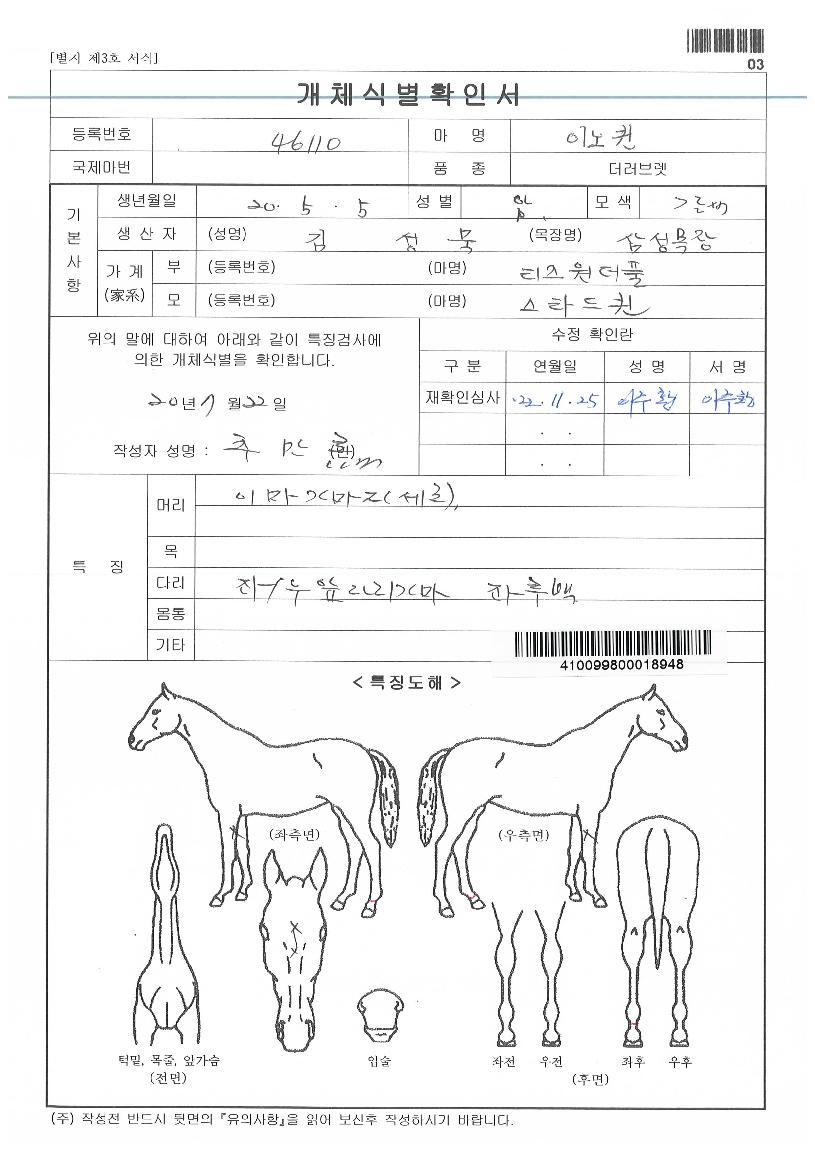 [별시 제3호 서식]
03
개체식별확인서
등록번호 46110 마 명 이노퀸
국제마번 품 종 더러브렛
기본사항
생년월일 20. 5. 5 성 별 암 모 색 갈색
생 산 자 (성명) 김 성 묵 (목장명) 삼성목장
가 계 (家系) 부 (등록번호) (마명) 티즈원더풀
모 (등록번호) (마명) 스타드퀸
위의 말에 대하여 아래와 같이 특징검사에
의한 개체식별을 확인합니다.
20년 7월 22일
작성자 성명 : 추 만 (인)
수정 확인란
구 분 연월일 성 명 서 명
재확인심사 '22. 11. 25
. .
. .
특 징
머리 이마가마 (세로),
목
다리 앞다리가마
몸통
기타
410099800018948
< 특징도해 >
(좌측면) (우측면)
턱밑, 목줄, 앞가슴 입술 좌전 우전 좌후 우후
(전면) (후면)
(주) 작성전 반드시 뒷면의 『유의사항』을 읽어 보신후 작성하시기 바랍니다.